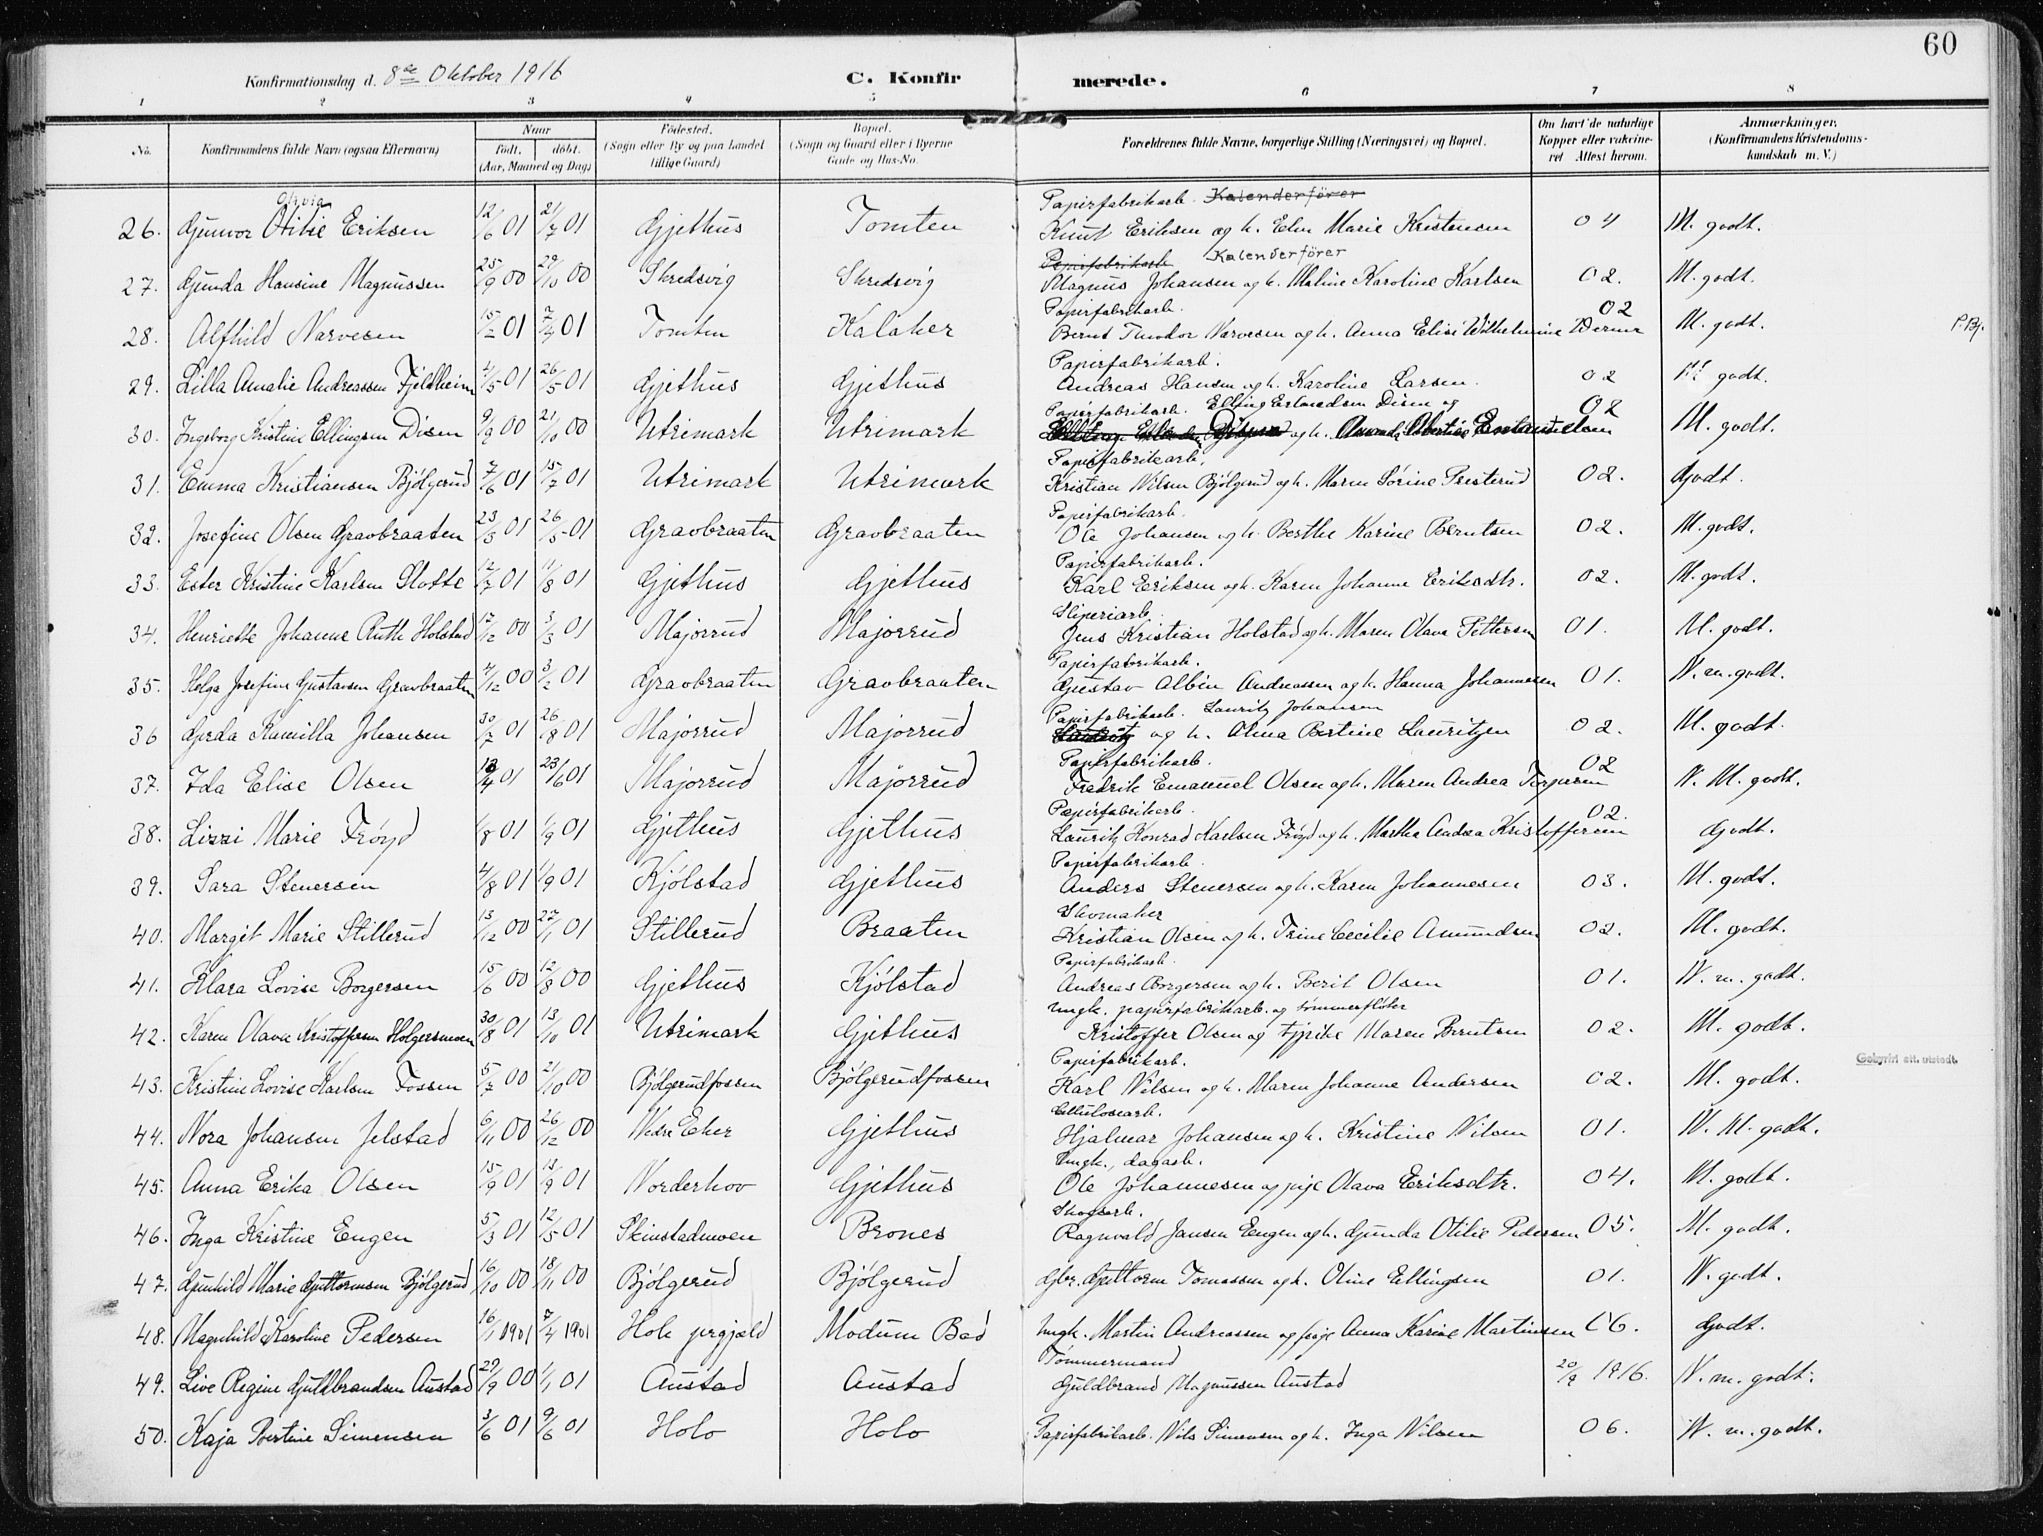 60
Konfirmationsdag d. 8de Oktober 1916 C. Konfirmerede.
1 2 3 4 5 6 7 8
No. Konfirmandens fulde Navn (ogsaa Efternavn) Naar Født, døbt. (Aar, Maaned og Dag) Fødested. (Sogn eller By og paa Landet tillige Gaard) Bopæl. (Sogn og Gaard eller i Byerne Gade og Hus-No. Forældrenes fulde Navne, borgerlige Stilling (Næringsvei) og Bopæl. Om havt de naturlige Kopper eller vakcineret Attest herom. Anmærkninger. (Konfirmandens Kristendomskundskab m. V.)
Papirfabrikarb. Kalenderfører
26. Gunvor Otilie Eriksen 12/6 01 21/7 01 Gjethus Tomten Knut Eriksen og h. Elen Marie Kristensen 04 M. godt.
Papirfabrikarb Kalenderfører
27. Gunda Hansine Magnussen 25/9 00 29/10 00 Skredsvig Skredsvig Magnus Johansen og h. Maline Karoline Karlsen 02. M. godt.
Papirfabrikarb.
28. Alfhild Narvesen 15/2 01 7/4 01 Tomten Kalaker Bernt Teodor Narvesen og h. Anna Elise Wilhelmine Werner 02 M. godt. P.Bj.
Papirfabrikarb.
29. Lilla Amalie Andreassen Fjeldheim 4/5 01 26/5 01 Gjethus Gjethus Andreas Hansen og h. Karoline Larsen. 02 M. godt.
Papirfabrikarb. Elling Erlandsen Disen og
30. Ingeborg Kristine Ellingsen Disen 9/9 00 21/10 00 Utrimark Utrimark og h. Amanda Albertine 02 M. godt.
Papirfabrikarb.
31. Emma Kristiansen Bjølgerud 7/6 01 15/7 01 Utrimark Utrimark Kristian Nilsen Bjølgerud og h. Maren Sørine Presterud 02. Godt.
Papirfabrikarb.
32. Josefine Olsen Gravbraaten 23/3 01 26/5 01 Gravbraaten Gravbraaten Ole Johansen og h. Berthe Karine Berntsen 02. M. godt.
Papirfabrikarb.
33. Ester Kristine Karlsen Slotte 12/7 01 11/8 01 Gjethus Gjethus Karl Eriksen og h. Karen Johanne Eriksdtr. 02. M. godt.
Sliperiarb.
34. Henriette Johanne Ruth Holstad 17/12 00 3/3 01 Majorrud Majorrud Jens Kristian Holstad og h. Maren Olava Pettersen 01. M. godt.
Papirfabrikarb.
35. Helga Josefine Gustavsen Gravbraaten 4/12 00 3/2 01 Gravbraaten Gravbraaten Gustav Albin Andreassen og h. Hanna Johannesen 01. N. m. godt.
Papirfabrikarb. Lauritz Johansen
36 Gerda Kamilla Johansen 30/7 01 26/8 01 Majorrud Majorrud og h. Alma Bertine Lauritzen 02. M. godt.
Papirfabrikarb.
37. Ida Elise Olsen /4 01 23/6 01 Majorrud Majorrud Fredrik Emanuel Olsen og h. Maren Andrea Torgersen 02 N. M. godt.
Papirfabrikarb.
38. Lizzi Marie Frøyd 1/8 01 1/9 01 Gjethus Gjethus Lauritz Konrad Karlsen Frøyd og h. Martha Andrea Kristoffersen 02. Godt.
Papirfabrikarb.
39. Sara Stenersen 4/8 01 1/9 01 Kjølstad Gjethus Anders Stenersen og h. Karen Johannesen 03. M. godt.
Skomaker
40. Margit Marie Stillerud 13/12 00 27/1 01 Stillerud Braaten Kristian Olsen og h. Trine Cecilie Amundsen 02. M. godt.
Papirfabrikarb.
41. Klara Lovise Borgersen 15/6 00 12/8 00 Gjethus Kjølstad Andreas Borgersen og h. Berit Olsen 01. N. m. godt.
Ungk. papirfabrikarb. og tømmerfløter
42. Karen Olava Kristoffersen Holgersmoen 30/8 01 13/10 01 Utrimark Gjethus Kristoffer Olsen og pike Maren Berntsen 02. M. godt.
Papirfabrikarb.
43. Kristine Lovise Karlsen Fossen 5/7 00 21/10 00 Bjølgerudfossen Bjølgerudfossen Karl Nilsen og h. Maren Johanne Andersen 02. M. godt. Gebyrfri att. utstedt.
Cellulosearb.
44. Nora Johansen Jelstad 6/11 00 26/12 00 Nedre Eker Gjethus Hjalmar Johansen og h. Kristine Nilsen 01. N. M. godt.
Ungk., dagarb.
45. Anna Erika Olsen 15/9 01 13/9 01 Norderhov Gjethus Ole Johannesen og pige Olava Eriksdtr. 04. M. godt.
Skogsarb.
46. Inga Kristine Engen 5/3 01 12/5 01 Skinstadmoen Brones Ragnvald Jansen Engen og h. Gunda Otilie Pedersen 05. M. godt.
47. Gunhild Marie Guttormsen Bjølgerud 16/10 00 18/11 00 Bjølgerud Bjølgerud Gbr. Guttorm Tomassen og h. Oline Ellingsen 01. N. godt.
48. Magnhild Karoline Pedersen 16/1 1901 7/4 1901 Hole prgjæld Modum Bad Ungk. Martin Andreassen og pige Anna Karine Martinsen 06. Godt.
Tømmermand
49. Live Regine Guldbrandsen Austad 29/9 00 1/1 01 Austad Austad Guldbrand Magnussen Austad 20/9 1916. N. m. godt.
50. Kaja Bertine Simensen 3/6 01 9/6 01 Holo Holo Papirfabrikarb. Nils Simensen og h. Inga Nilsen 06. N. m. godt.